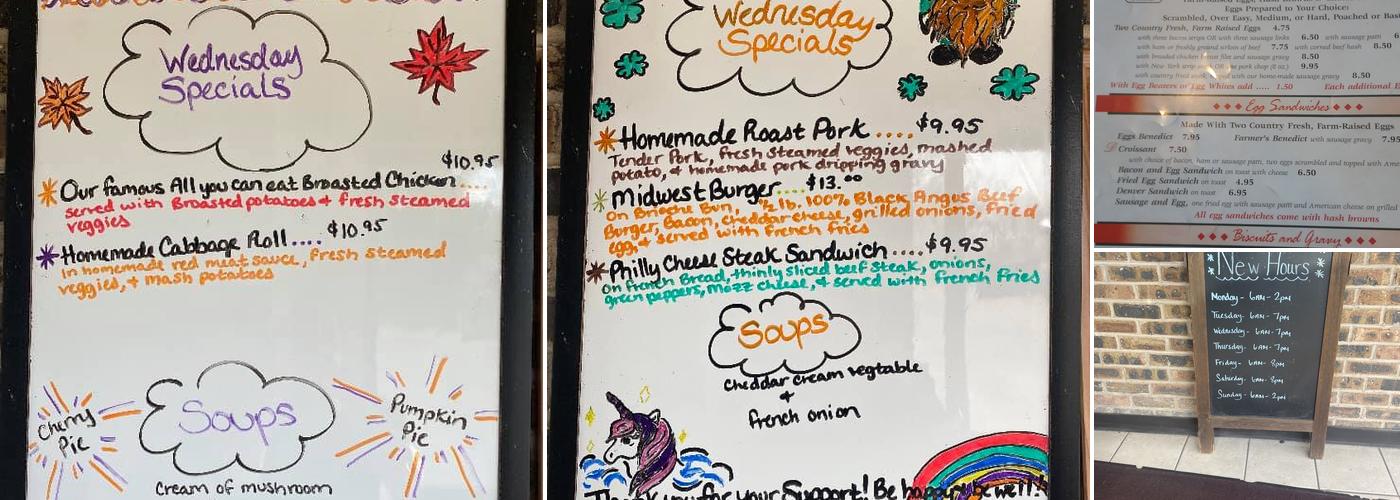 Wednesday
Specials
$10.95
Our famous All you can eat Broasted Chicken....
served with Broasted potatoes & fresh steamed
veggies
Homemade Cabbage Roll.... $10.95
In homemade red meat sauce, fresh steamed
veggies, & mash potatoes
Cherry
Pie
Soups
Pumpkin
Pie
Cream of mushroom
Wednesday
Specials
Homemade Roast Pork.... $9.95
Tender Pork, fresh steamed veggies, mashed
potato, & homemade pork dripping gravy
Midwest Burger.... $13.00
on Brioche Bun, 1/2 lb. 100% Black Angus Beef
Burger, Bacon, cheddar cheese, grilled onions, fried
egg, & served with french fries
Philly Cheese Steak Sandwich.....$9.95
on french Bread, thinly sliced beef steak, onions,
green peppers, mozz cheese, & served with french fries
Soups
Cheddar cream vegtable
+
french onion
Thank you for your Support! Be happy, be well!
Eggs Prepared to Your Choice:
Scrambled, Over Easy, Medium, or Hard, Poached or
Two Country Fresh, Farm Raised Eggs 4.75
with three bacon strips OR with three sausage links 6.50 with sausage patti
with ham or freshly ground sirloin of beef 7.75 with corned beef hash 8.50
with breaded chicken breast filet and sausage gravy 8.50
with New York strip OR pork chop (8 oz.) 9.95
with country fried steak with our home-made sausage gravy 8.50
With Egg Beaters or Egg Whites add ..... 1.50 Each additional
Egg Sandwiches
Made With Two Country Fresh, Farm-Raised Eggs
Eggs Benedict 7.95 Farmer's Benedict with sausage gravy 7.95
Croissant 7.50
with choice of bacon, ham or sausage patti, two eggs scrambled and topped with
Bacon and Egg Sandwich on toast with cheese 6.50
Fried Egg Sandwich on toast 4.95
Denver Sandwich on toast 6.95
Sausage and Egg, one fried egg with sausage patti and American cheese on grilled
All egg sandwiches come with hash browns
Biscuits and Gravy
New Hours
Monday - 6AM - 2pm
Tuesday - 6AM - 7pm
Wednesday - 6AM - 7pm
Thursday - 6AM - 7pm
Friday - 6AM - 8pm
Saturday - 6AM - 8pm
Sunday - 6AM - 2pm